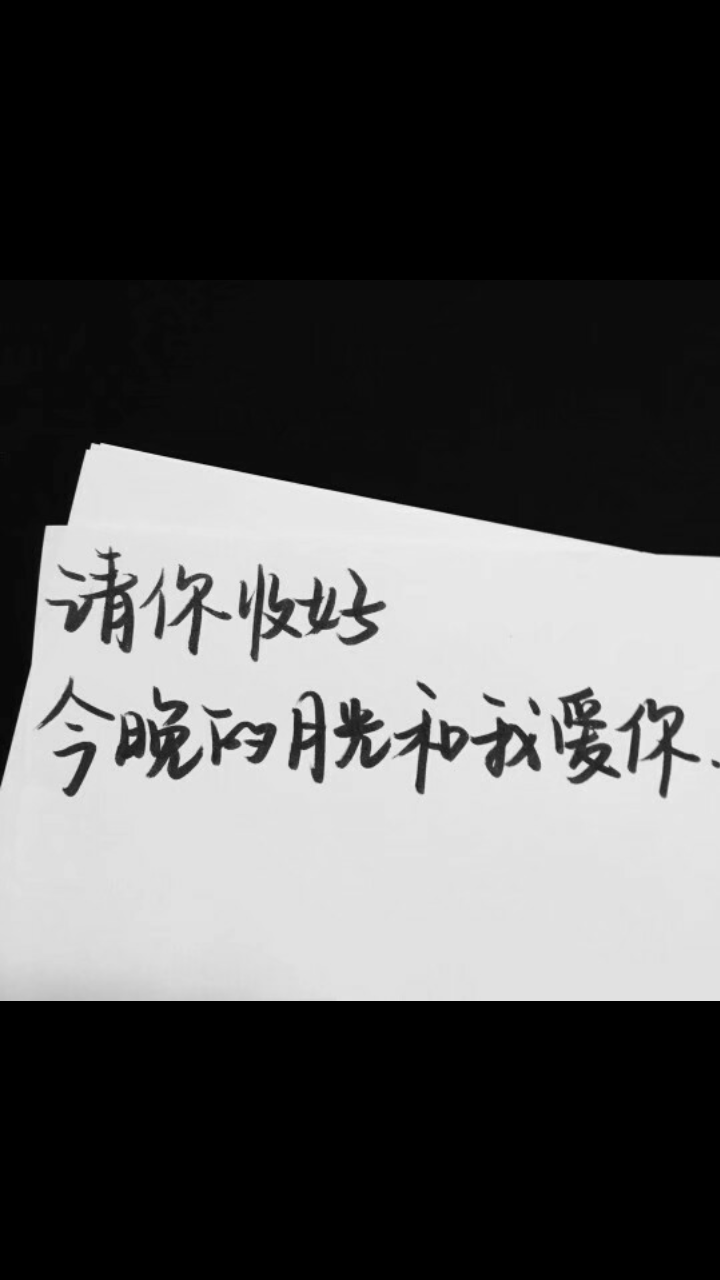 请你收好
今晚的月光和我爱你.